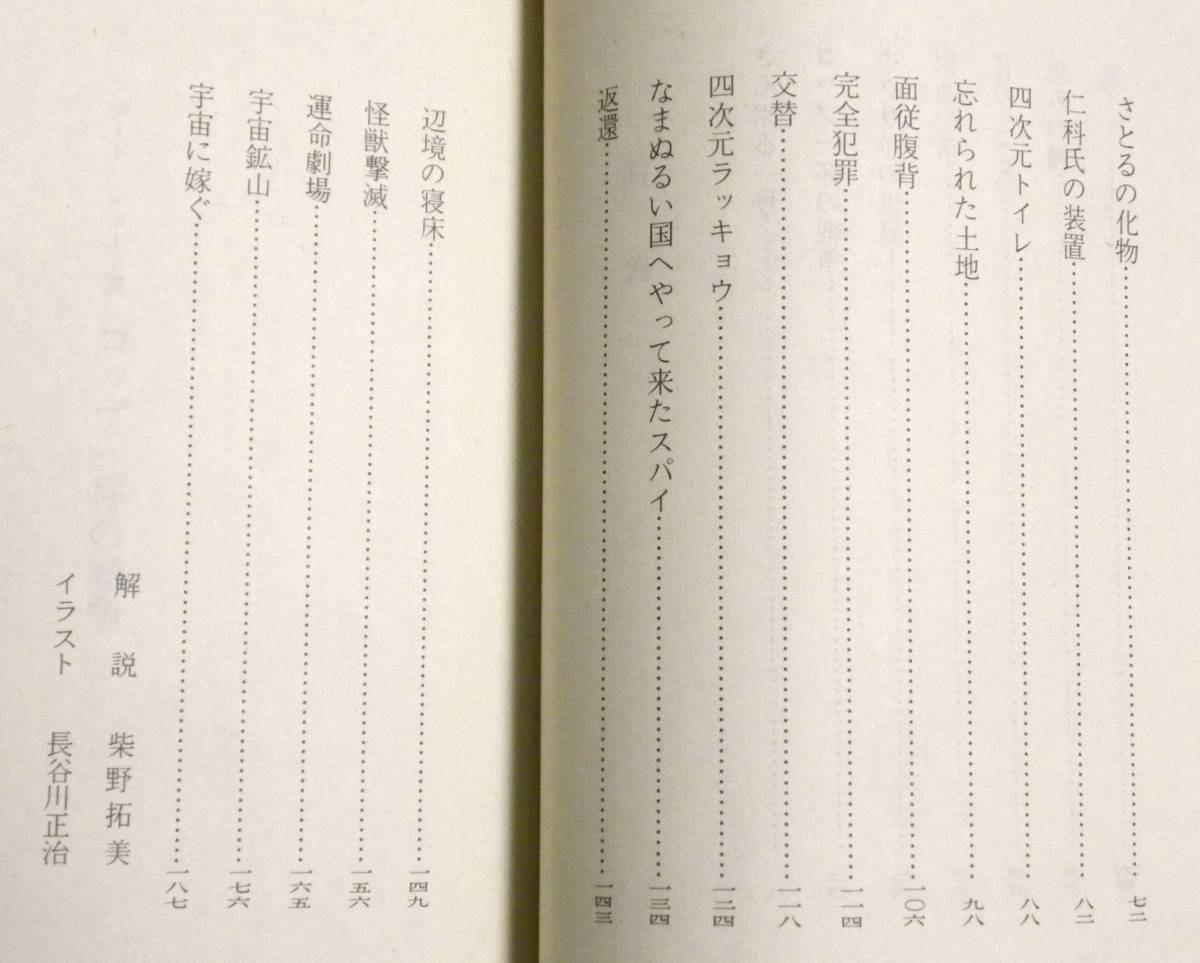 さとるの化物……七二
仁科氏の装置……八二
四次元トイレ……八八
忘れられた土地……九八
面従腹背……一〇六
完全犯罪……一一四
交替……一一八
四次元ラッキョウ……一二四
なまぬるい国へやって来たスパイ……一三四
返還……一四三
辺境の寝床……一四九
怪獣撃滅……一五六
運命劇場……一六五
宇宙鉱山……一七六
宇宙に嫁ぐ……一八七
解説 柴野拓美
イラスト 長谷川正治